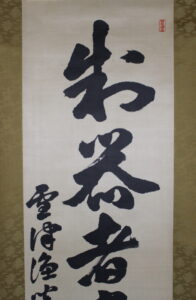 制器者
雪澤漁